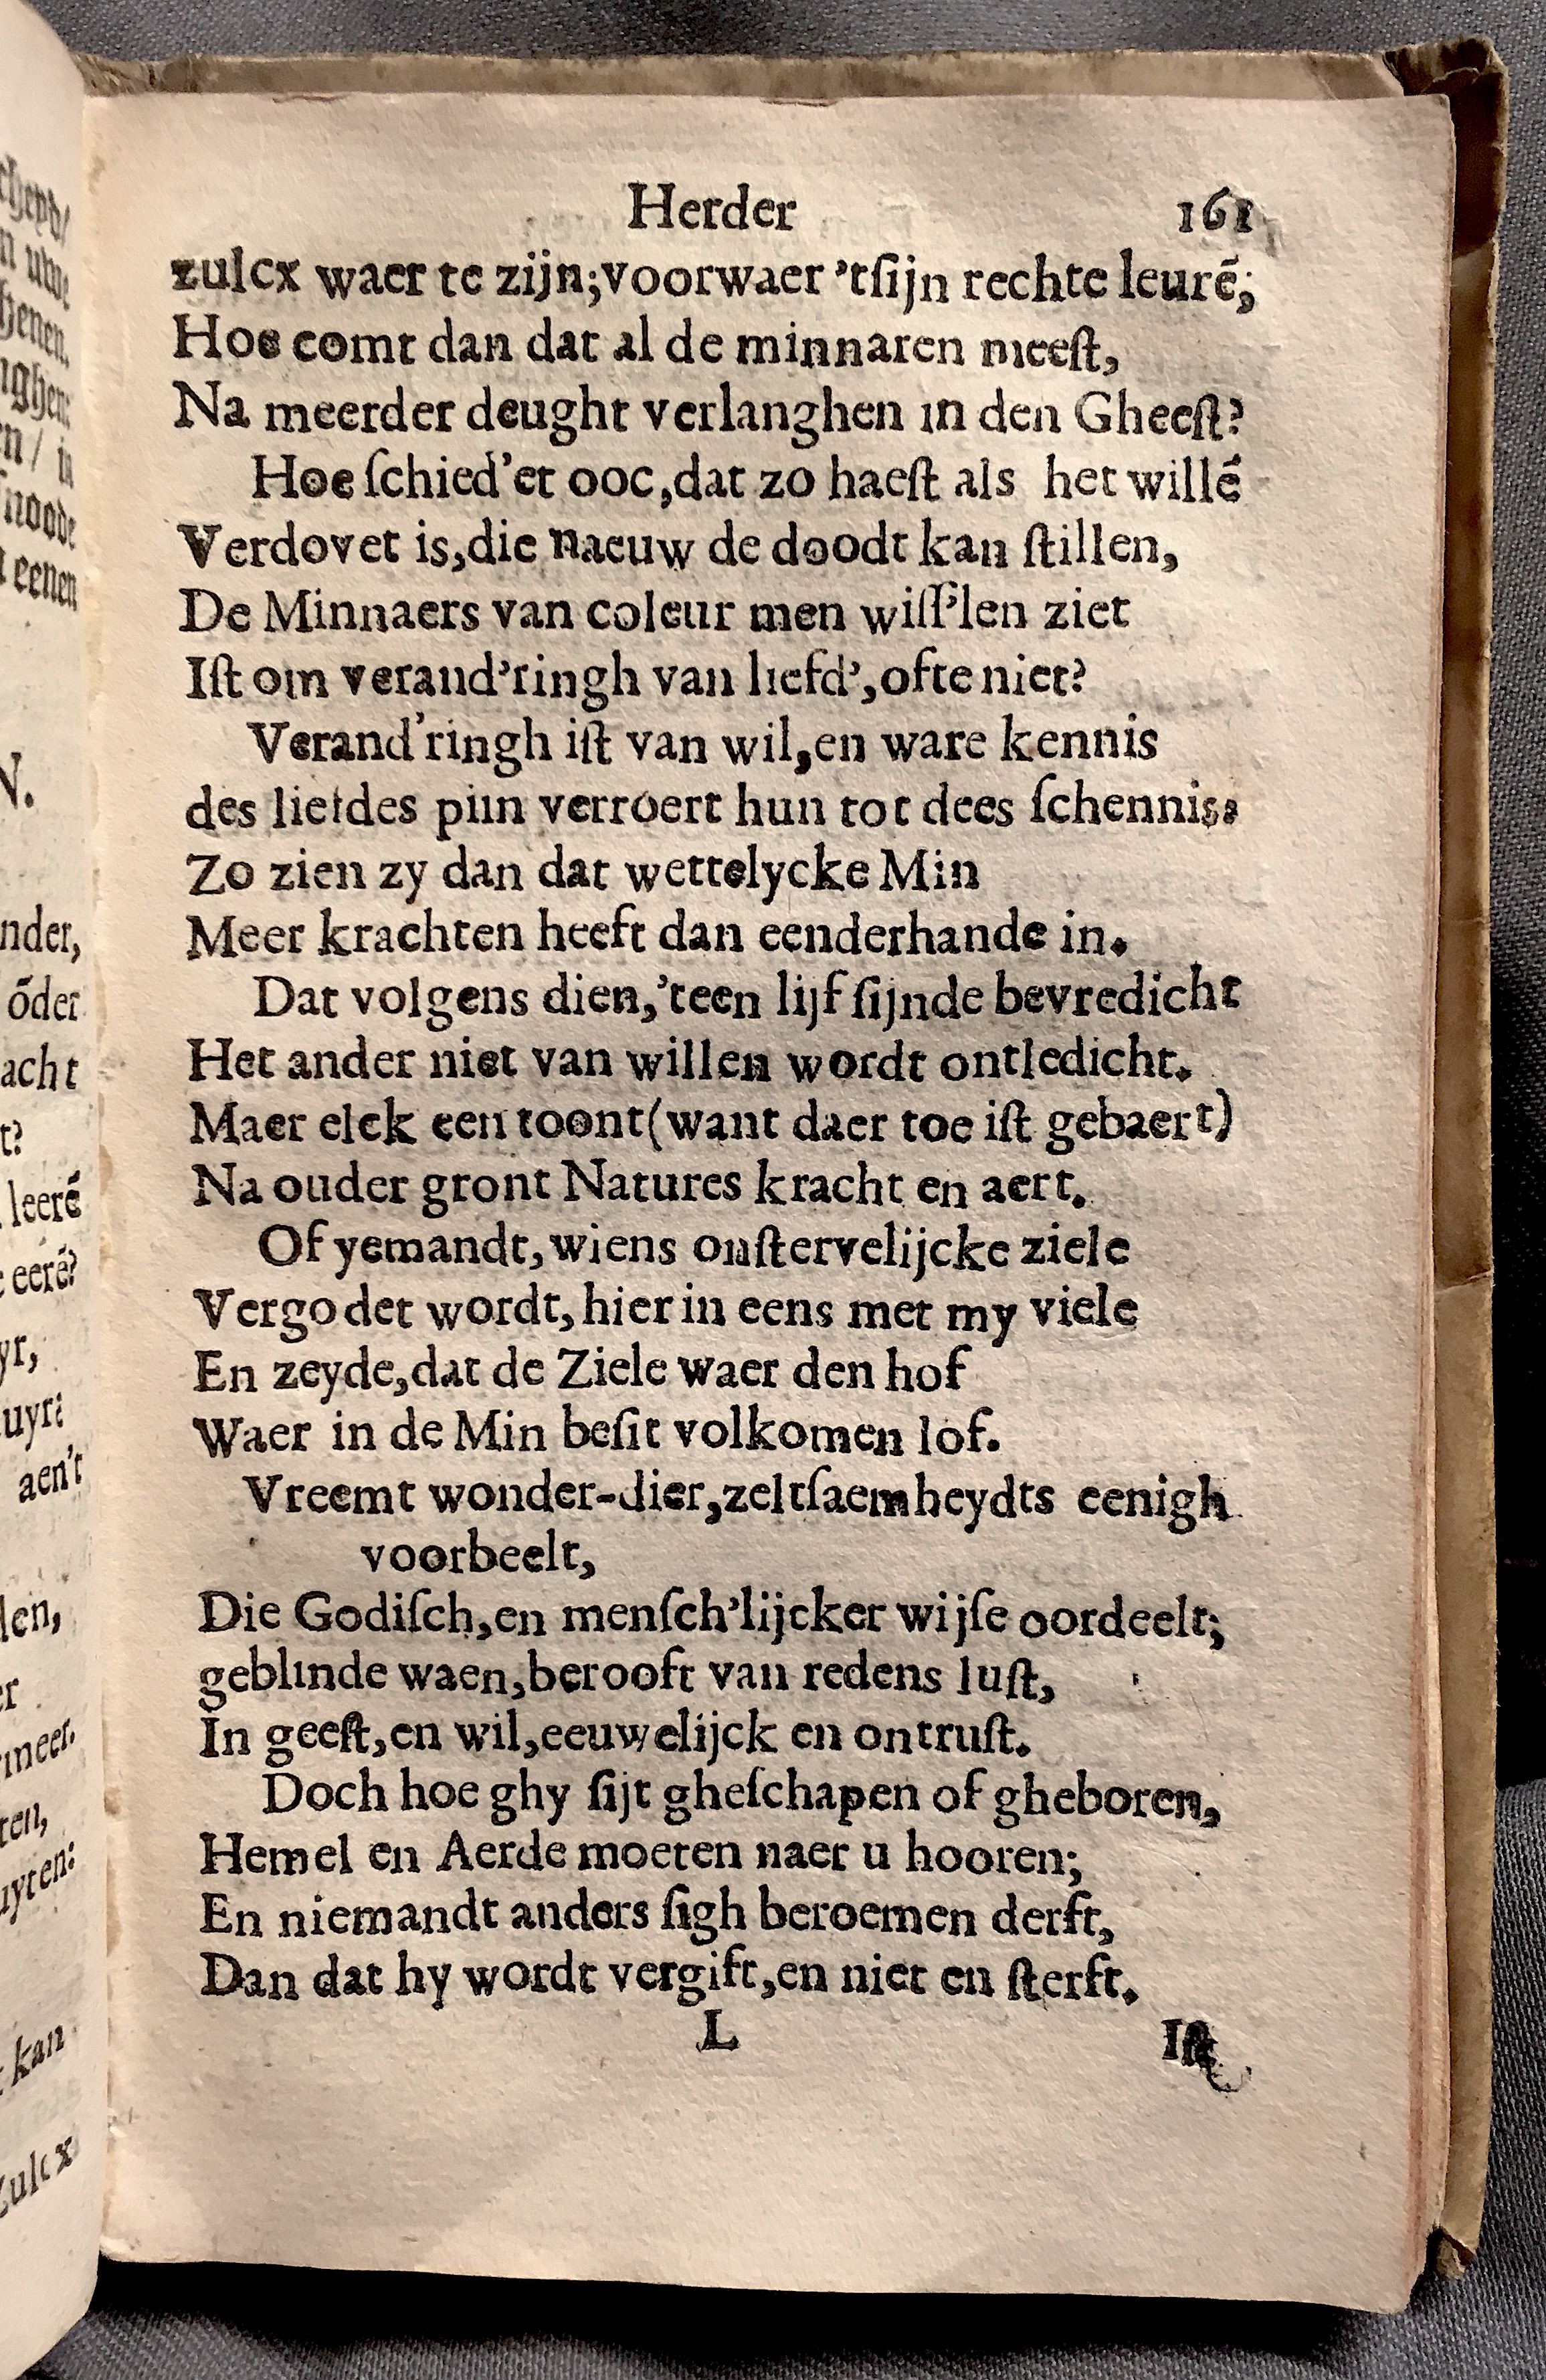 Herder 161
zulcx waer te zijn;voorwaer 'tſijn rechte leurē;
Hoe comt dan dat al de minnaren meeſt,
Na meerder deught verlanghen in den Gheeſt?
Hoe ſchied'et ooc,dat zo haeſt als het willē
Verdovet is,die naeuw de doodt kan ſtillen,
De Minnaers van coleur men wiſſ'len ziet
Iſt om veraud'ringh van liefd',ofte niet?
Verand'ringh iſt van wil,en ware kennis
des liefdes piin verroert hun tot dees ſchennis.
Zo zien zy dan dat wettelycke Min
Meer krachten heeft dan eenderhande in.
Dat volgens dien,'teen lijf ſijnde bevredicht
Het ander niet van willen wordt ontledicht.
Maer elck een toont(want daer toe iſt gebaert)
Na ouder gront Natures kracht en aert.
Of yemandt,wiens onſtervelijcke ziele
Vergodet wordt,hier in eens met my viele
En zeyde,dat de Ziele waer den hof
Waer in de Min beſit volkomen lof.
Vreemt wonder-dier,zeltſaemheydts eenigh
voorbeelt,
Die Godiſch,en menſch'lijcker wijſe oordeelt;
geblinde waen,berooft van redens luſt,
In geeſt,en wil,eeuwelijck en ontruſt.
Doch hoe ghy ſijt gheſchapen of gheboren,
Hemel en Aerde moeten naer u hooren;
En niemandt anders ſigh beroemen derft,
Dan dat hy wordt vergift,en niet en ſterft.
L Iſt